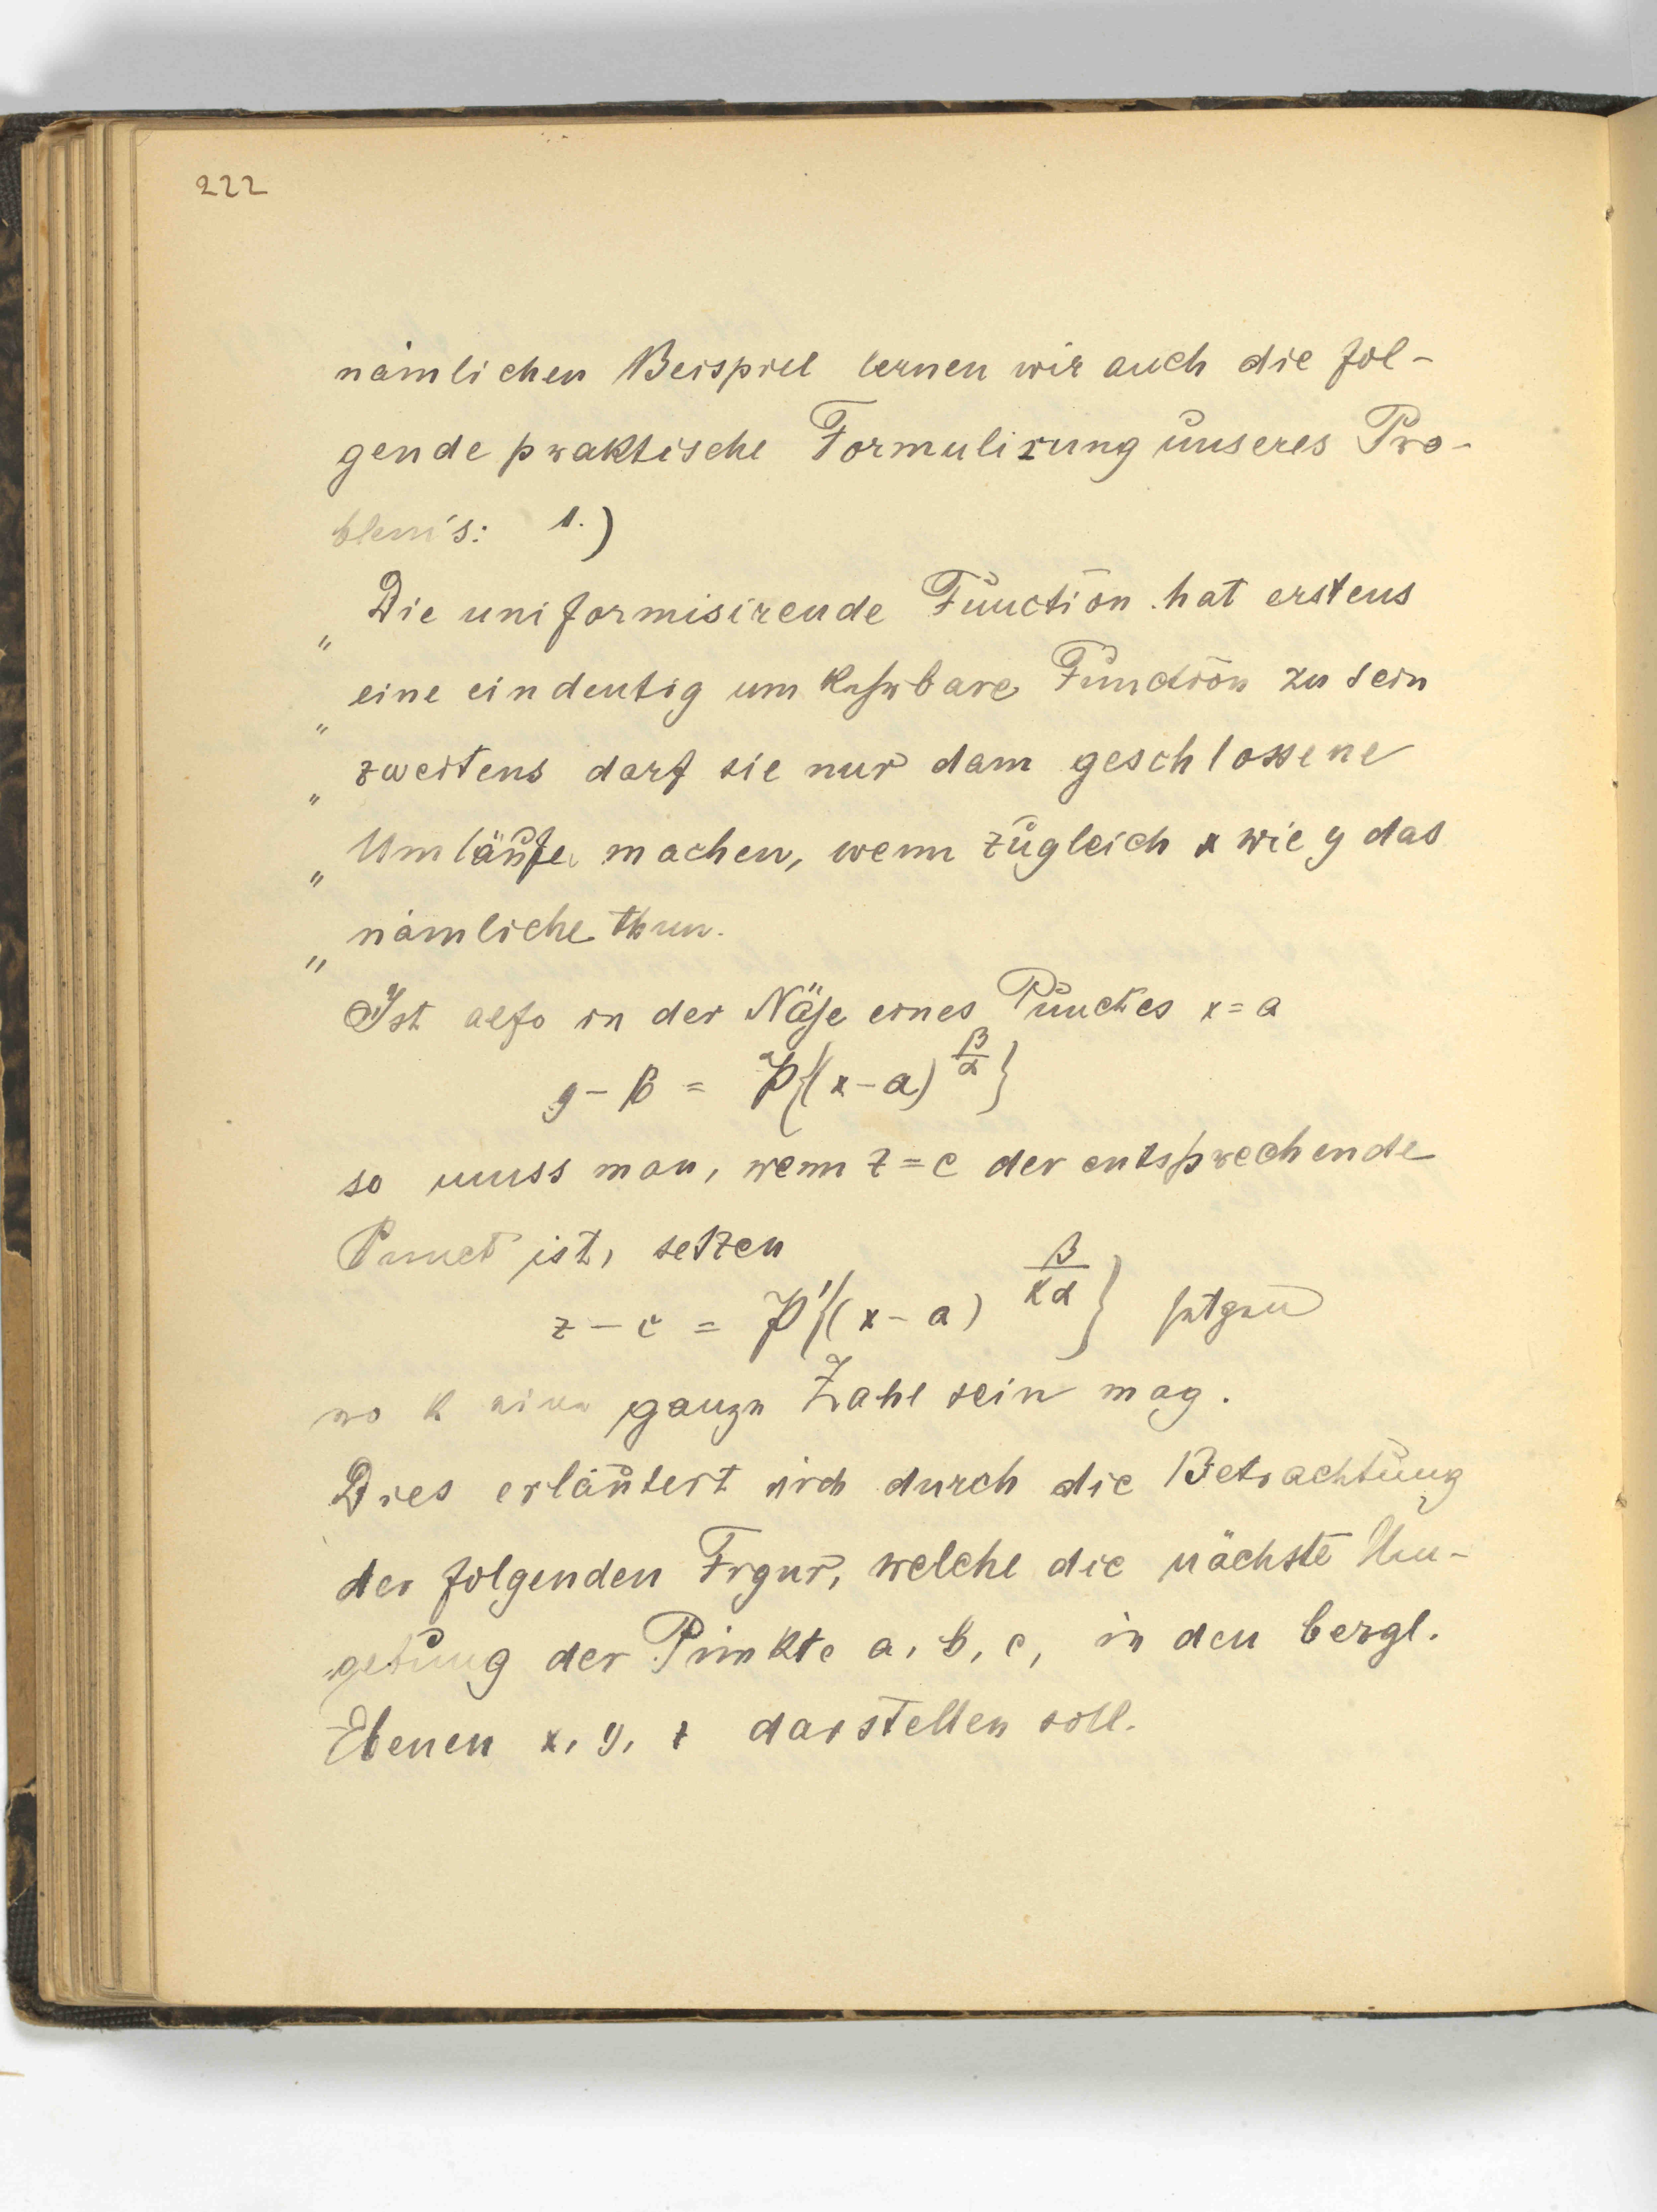 222
nämlichen Beispiel lernen wir auch die fol-
gende praktische Formulirung unseres Pro-
blem's: 1.)
„ Die uniformisirende Function hat erstens
„ eine eindeutig umkehrbare Function zu sein
„ zweitens darf sie nur dann geschlossene
„ Umläufe machen, wenn zugleich x wie y das
„ nämliche thun.
Ist also in der Nähe eines Punctes x = a
y - b = P{(x-a)^{β/α}}
so muss man, wenn z = c der entsprechende
Punct ist, setzen
z - c = P'{(x-a)^{β/κα}}
wo k eine ganze Zahl sein mag.
Dies erläutert sich durch die Betrachtung
der folgenden Figur, welche die nächste Um-
gebung der Punkte a, b, c, in den bezgl.
Ebenen x, y, z darstellen soll.